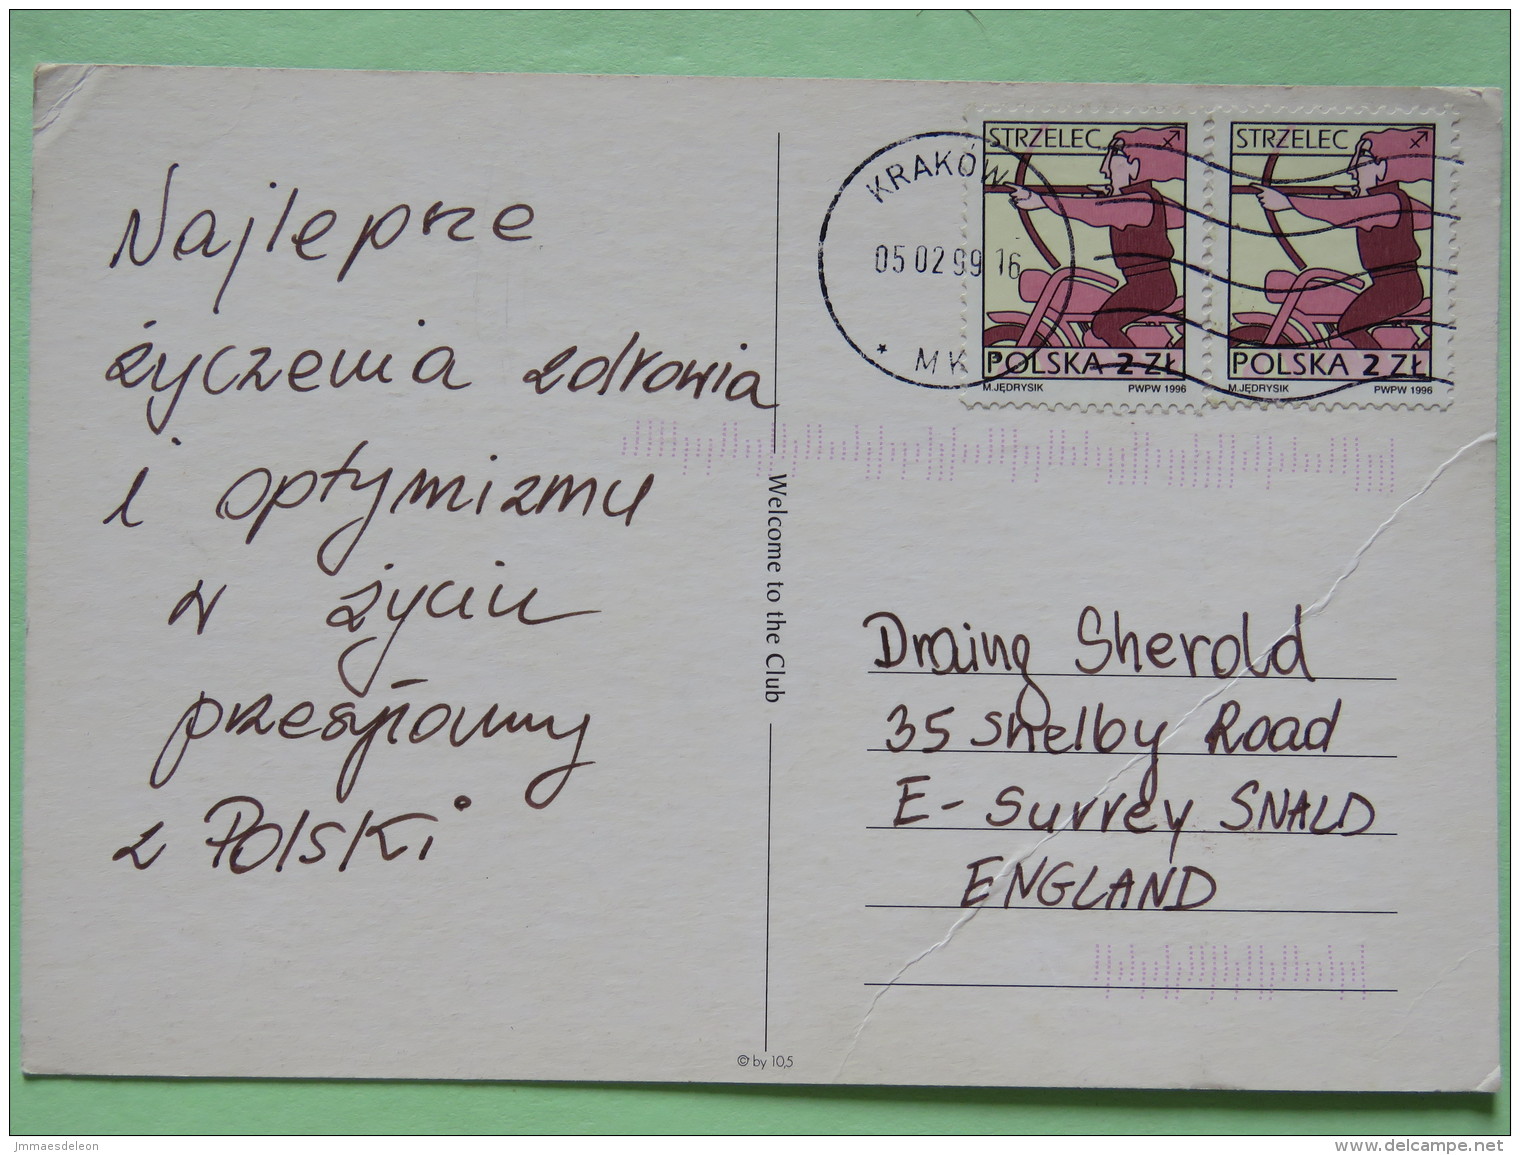 Najlepsze
życzenia zdrowia
i optymizmu
w życiu
przesyłamy
z Polski
Welcome to the Club
© by 10,5
KRAKÓW
05 02 99 16
* MK
STRZELEC
POLSKA 2 ZŁ
M.JĘDRYSIK PWPW 1996
STRZELEC
POLSKA 2 ZŁ
M.JĘDRYSIK PWPW 1996
Draing Sherold
35 Shelby Road
E- Surrey SNALD
ENGLAND
jmmaesdeleon
www.delcampe.net